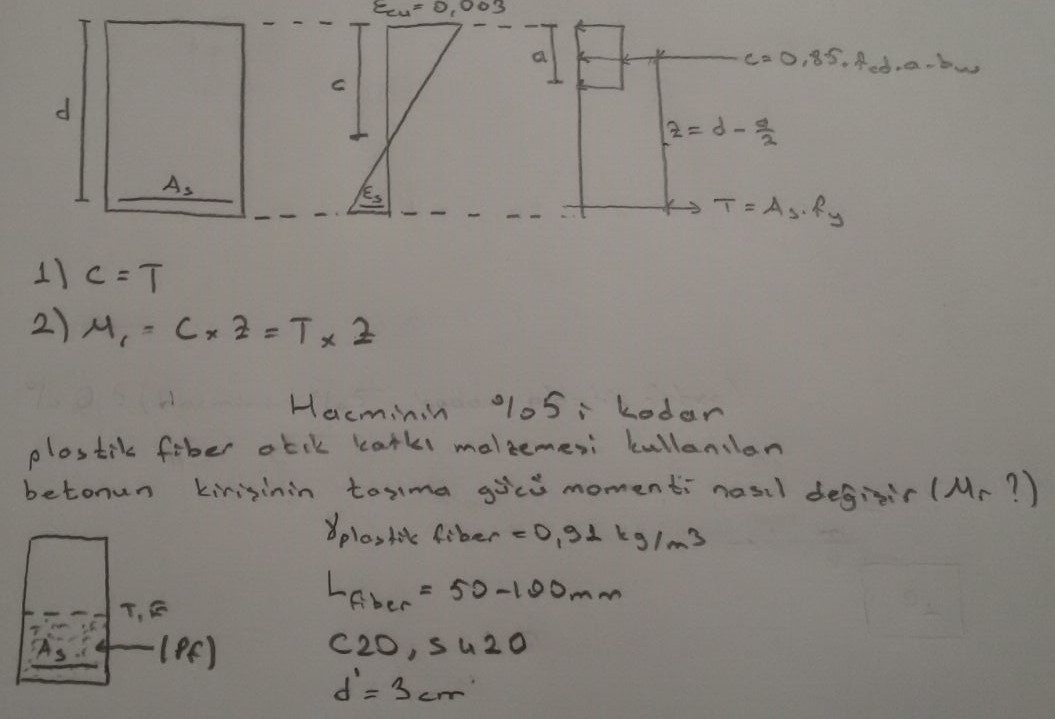 εcu = 0,003
d
c
a
c=0,85.fcd.a.bw
z = d - a/2
As
εs
T = As.fy
1) C = T
2) Mr = C x Z = T x Z
Hacminin %5 i kadar
plastik fiber atık katkı malzemesi kullanılan
betonun kirişinin taşıma gücü momenti nasıl değişir (Mr ?)
γplastik fiber = 0,91 kg/m3
Lfiber = 50-100mm
T,E
As
(Pf)
C20, S420
d' = 3 cm